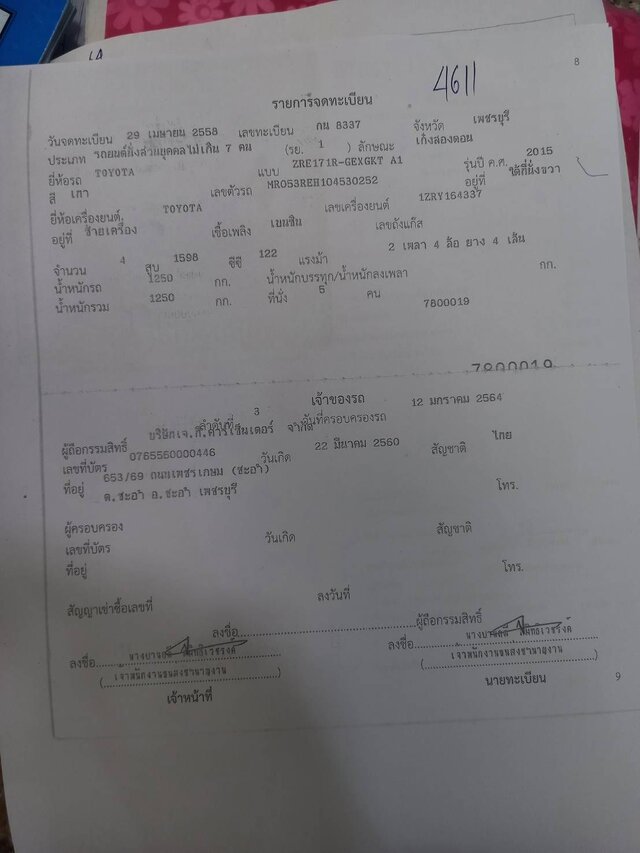 8
4611
รายการจดทะเบียน
วันจดทะเบียน 29 เมษายน 2558 เลขทะเบียน กน 8337 จังหวัด เพชรบุรี
ประเภท รถยนต์นั่งส่วนบุคคลไม่เกิน 7 คน (รย. 1 ) ลักษณะ เก๋งสองตอน
ยี่ห้อรถ TOYOTA แบบ ZRE171R-GEXGKT A1 รุ่นปี ค.ศ. 2015
สี เทา เลขตัวรถ MR053REH104530252 อยู่ที่ ใต้ที่นั่งขวา
ยี่ห้อเครื่องยนต์ TOYOTA เลขเครื่องยนต์ 1ZRY164337
อยู่ที่ ซ้ายเครื่อง เชื้อเพลิง เบนซิน เลขถังแก๊ส
จำนวน 4 สูบ 1598 ซีซี 122 แรงม้า 2 เพลา 4 ล้อ ยาง 4 เส้น
น้ำหนักรถ 1250 กก. น้ำหนักบรรทุก/น้ำหนักลงเพลา กก.
น้ำหนักรวม 1250 กก. ที่นั่ง 5 คน
7800019
7800019
เจ้าของรถ
ลำดับที่ 3 วันที่ครอบครองรถ 12 มกราคม 2564
ผู้ถือกรรมสิทธิ์ บริษัทเจ.ที.คาร์เซ็นเตอร์ จำกัด
เลขที่บัตร 0765560000446 วันเกิด 22 มีนาคม 2560 สัญชาติ ไทย
ที่อยู่ 653/69 ถนนเพชรเกษม (ชะอำ)
ต.ชะอำ อ.ชะอำ เพชรบุรี โทร.
ผู้ครอบครอง
เลขที่บัตร วันเกิด สัญชาติ
ที่อยู่ โทร.
สัญญาเช่าซื้อเลขที่ ลงวันที่
ลงชื่อ ผู้ถือกรรมสิทธิ์
ลงชื่อ ลงชื่อ
(เจ้าพนักงานขนส่งชำนาญงาน) (เจ้าพนักงานขนส่งชำนาญงาน)
เจ้าหน้าที่ นายทะเบียน
9